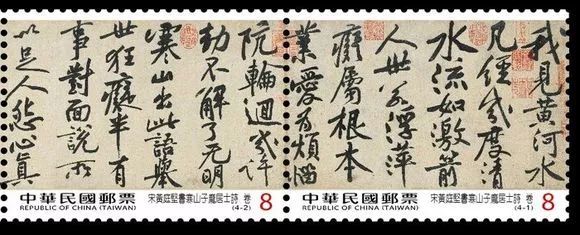 我見黃河水
凡經幾度清
水流如激箭
人世若浮萍
癡屬根本
業愛為煩惱
阬輪迴幾許
劫不解了无明
寒山出此語舉
世狂癡半有
事對面說所
以足人怨心真
中華民國郵票
REPUBLIC OF CHINA (TAIWAN)
宋黃庭堅書寒山子龐居士詩 卷
(4-2)
8
中華民國郵票
REPUBLIC OF CHINA (TAIWAN)
宋黃庭堅書寒山子龐居士詩 卷
(4-1)
8